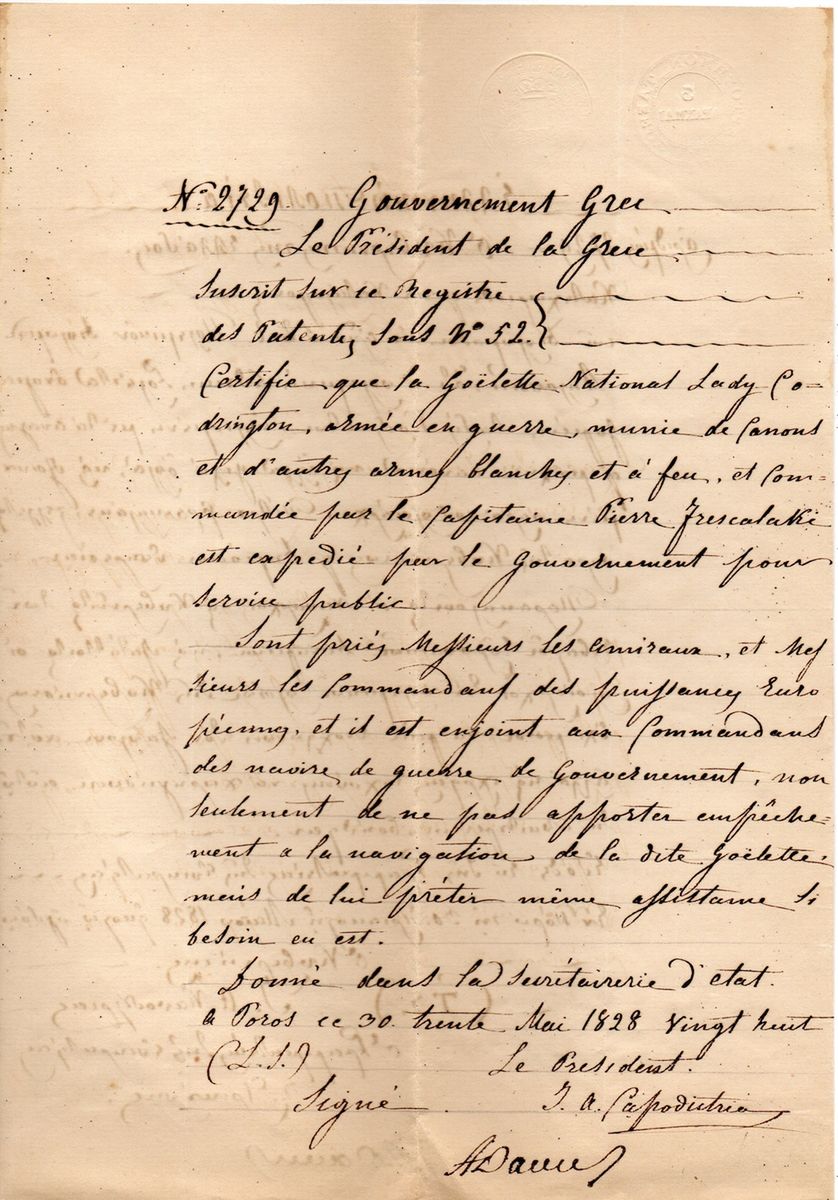 N° 2729. Gouvernement Grec
Le Président de la Grece
Suscrit sur ce Registre
des Patentes sous N° 52.
Certifie que la Goëlette National Lady Co=
drington, armée en guerre, munie de Canons
et d'autres armes blanches et à feu, et Com=
mandée par le Capitaine Pierre Frescalaki
est expedié par le Gouvernement pour
service public.
Sont priés Messieurs les amiraux, et Mes
sieurs les Commandans des puissances Euro
péennes, et il est enjoint aux Commandans
des navires de guerre de Gouvernement, non
seulement de ne pas apporter empêche=
ment a la navigation de la dite Goëlette.
mais de lui prêter même assistance si
besoin en est.
Donné dans la Secrétairerie d'etat.
a Poros ce 30. trente Mai 1828 vingt huit
(L.S.) Le President.
Signé J. A. Capodistria